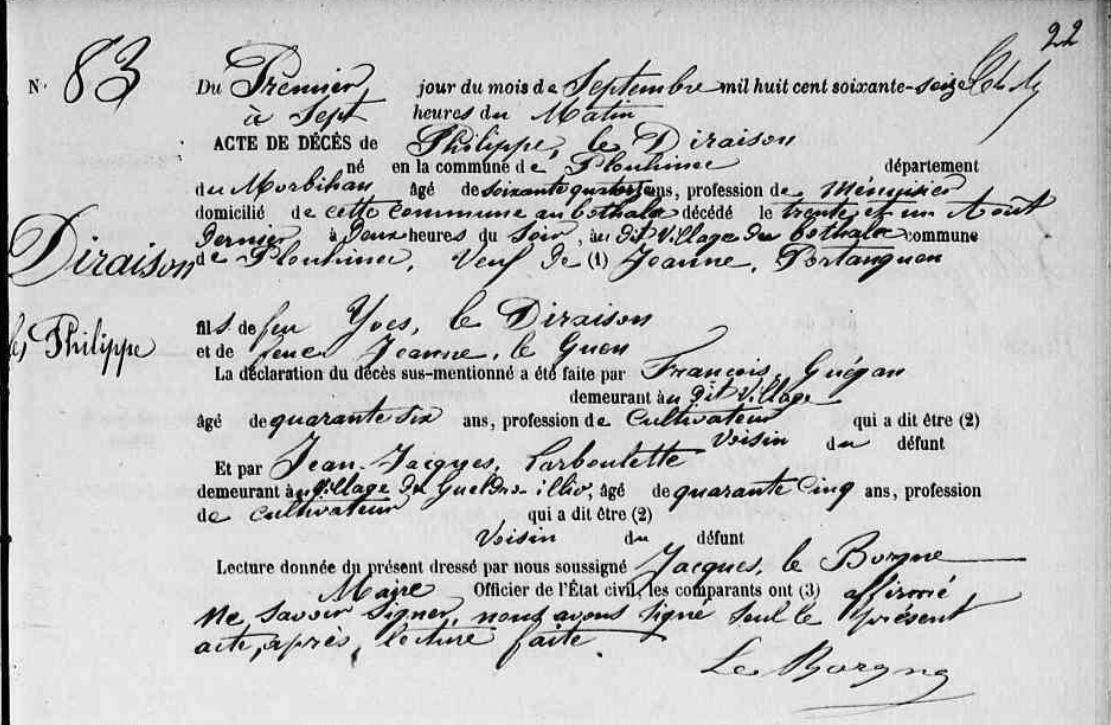 22
N. 83
Du Premier jour du mois de Septembre mil huit cent soixante-seize
à Sept heures du Matin
ACTE DE DÉCÈS de Philippe, le Diraison
né en la commune de Plouhinec département
du Morbihan âgé de soixante quatorze ans, profession de Ménuisier
domicilié de cette commune au bothalec décédé le trente et un Août
dernier à deux heures du Soir, au dit Village du bothalec commune
de Plouhinec, Veuf de (1) Jeanne, Portanguen
Diraison
le, Philippe
fils de feu Yves, le Diraison
et de feue Jeanne, le Guen
La déclaration du décès sus-mentionné a été faite par François, Guégan
demeurant au dit Village
âgé de quarante Six ans, profession de Cultivateur qui a dit être (2)
Voisin du défunt
Et par Jean-Jacques, Carboulette
demeurant au Village du illio, âgé de quarante Cinq ans, profession
de Cultivateur qui a dit être (2)
Voisin du défunt
Lecture donnée du présent dressé par nous soussigné Jacques, le Borgne
Maire Officier de l'État civil, les comparants ont (3) affirmé
Ne, Savoir Signer, nous avons Signé Seul le présent
acte, après, lecture faite.
Le Borgne